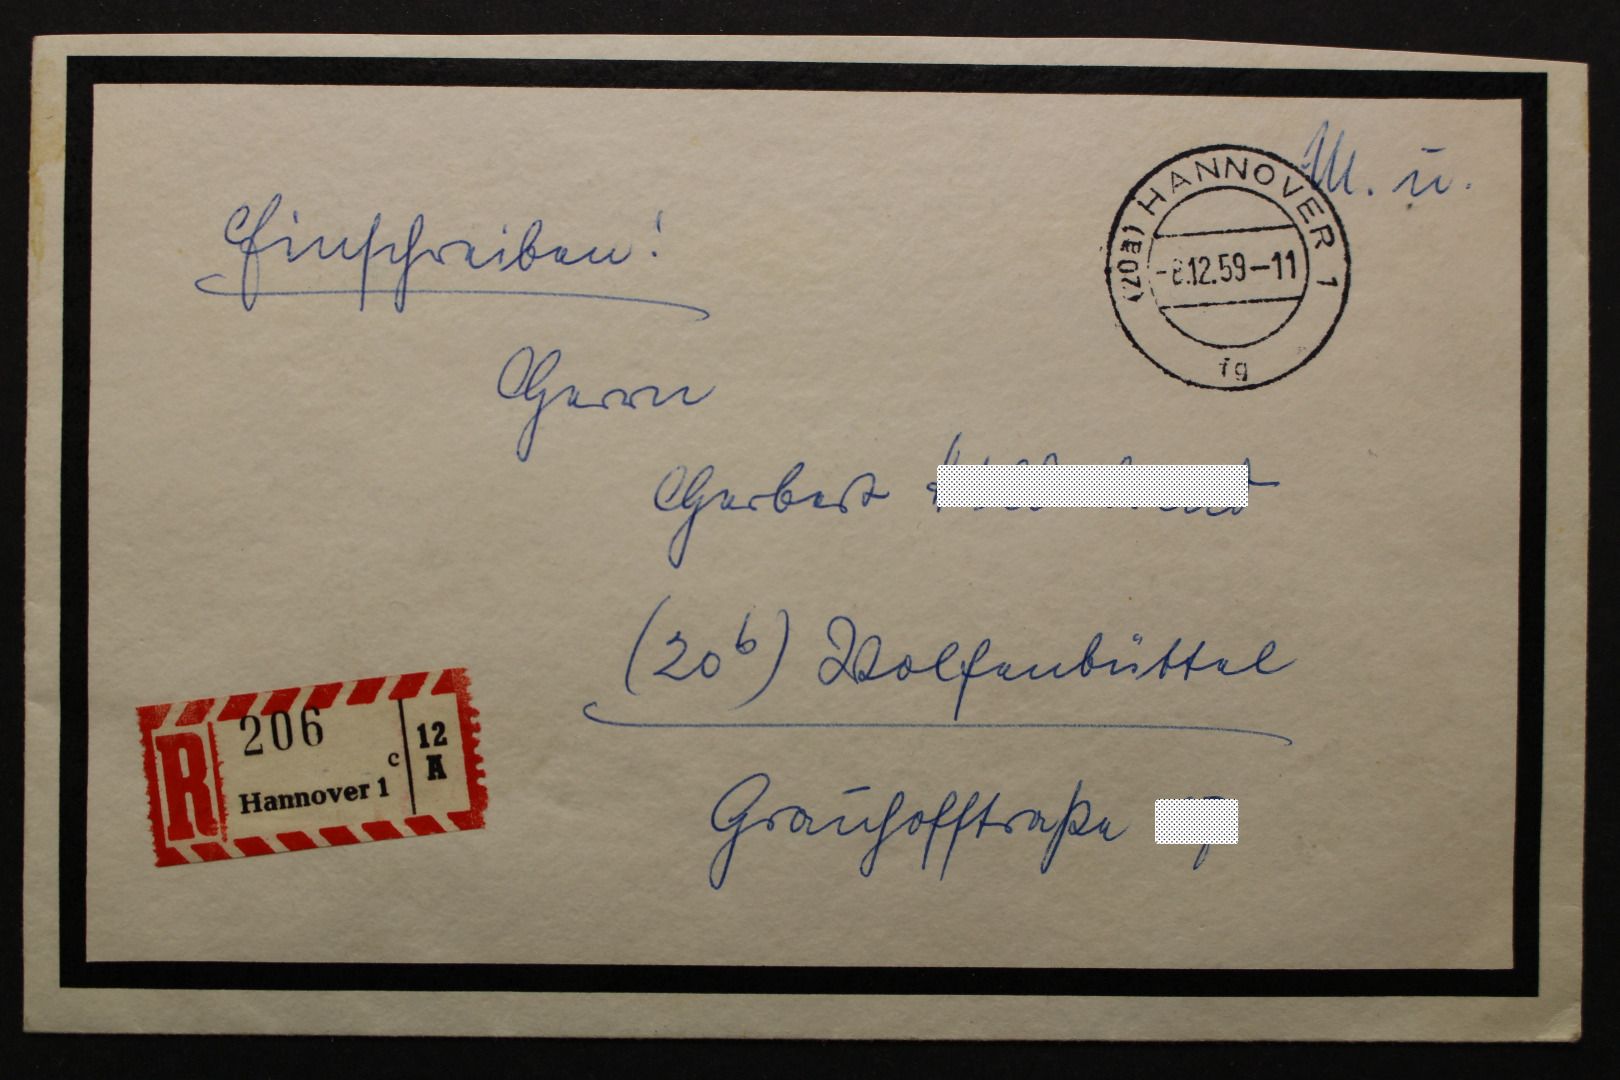 M. ü.
(20a) HANNOVER 1
-8.12.59-11
fg
Einschreiben!
Herrn
Herbert
(20b) Wolfenbüttel
Grauhofstraße
R 206
Hannover 1 c
12
A